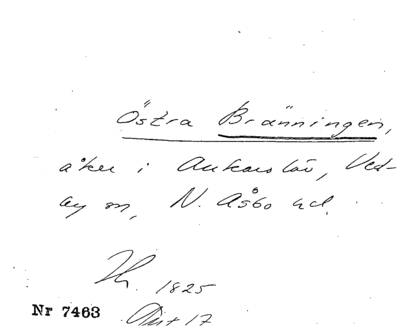 Östra Bränningen,
åker i Ankarslöv, Ved-
by sn, N. Åsbo hd.
1825
Nr 7463
Akt 17